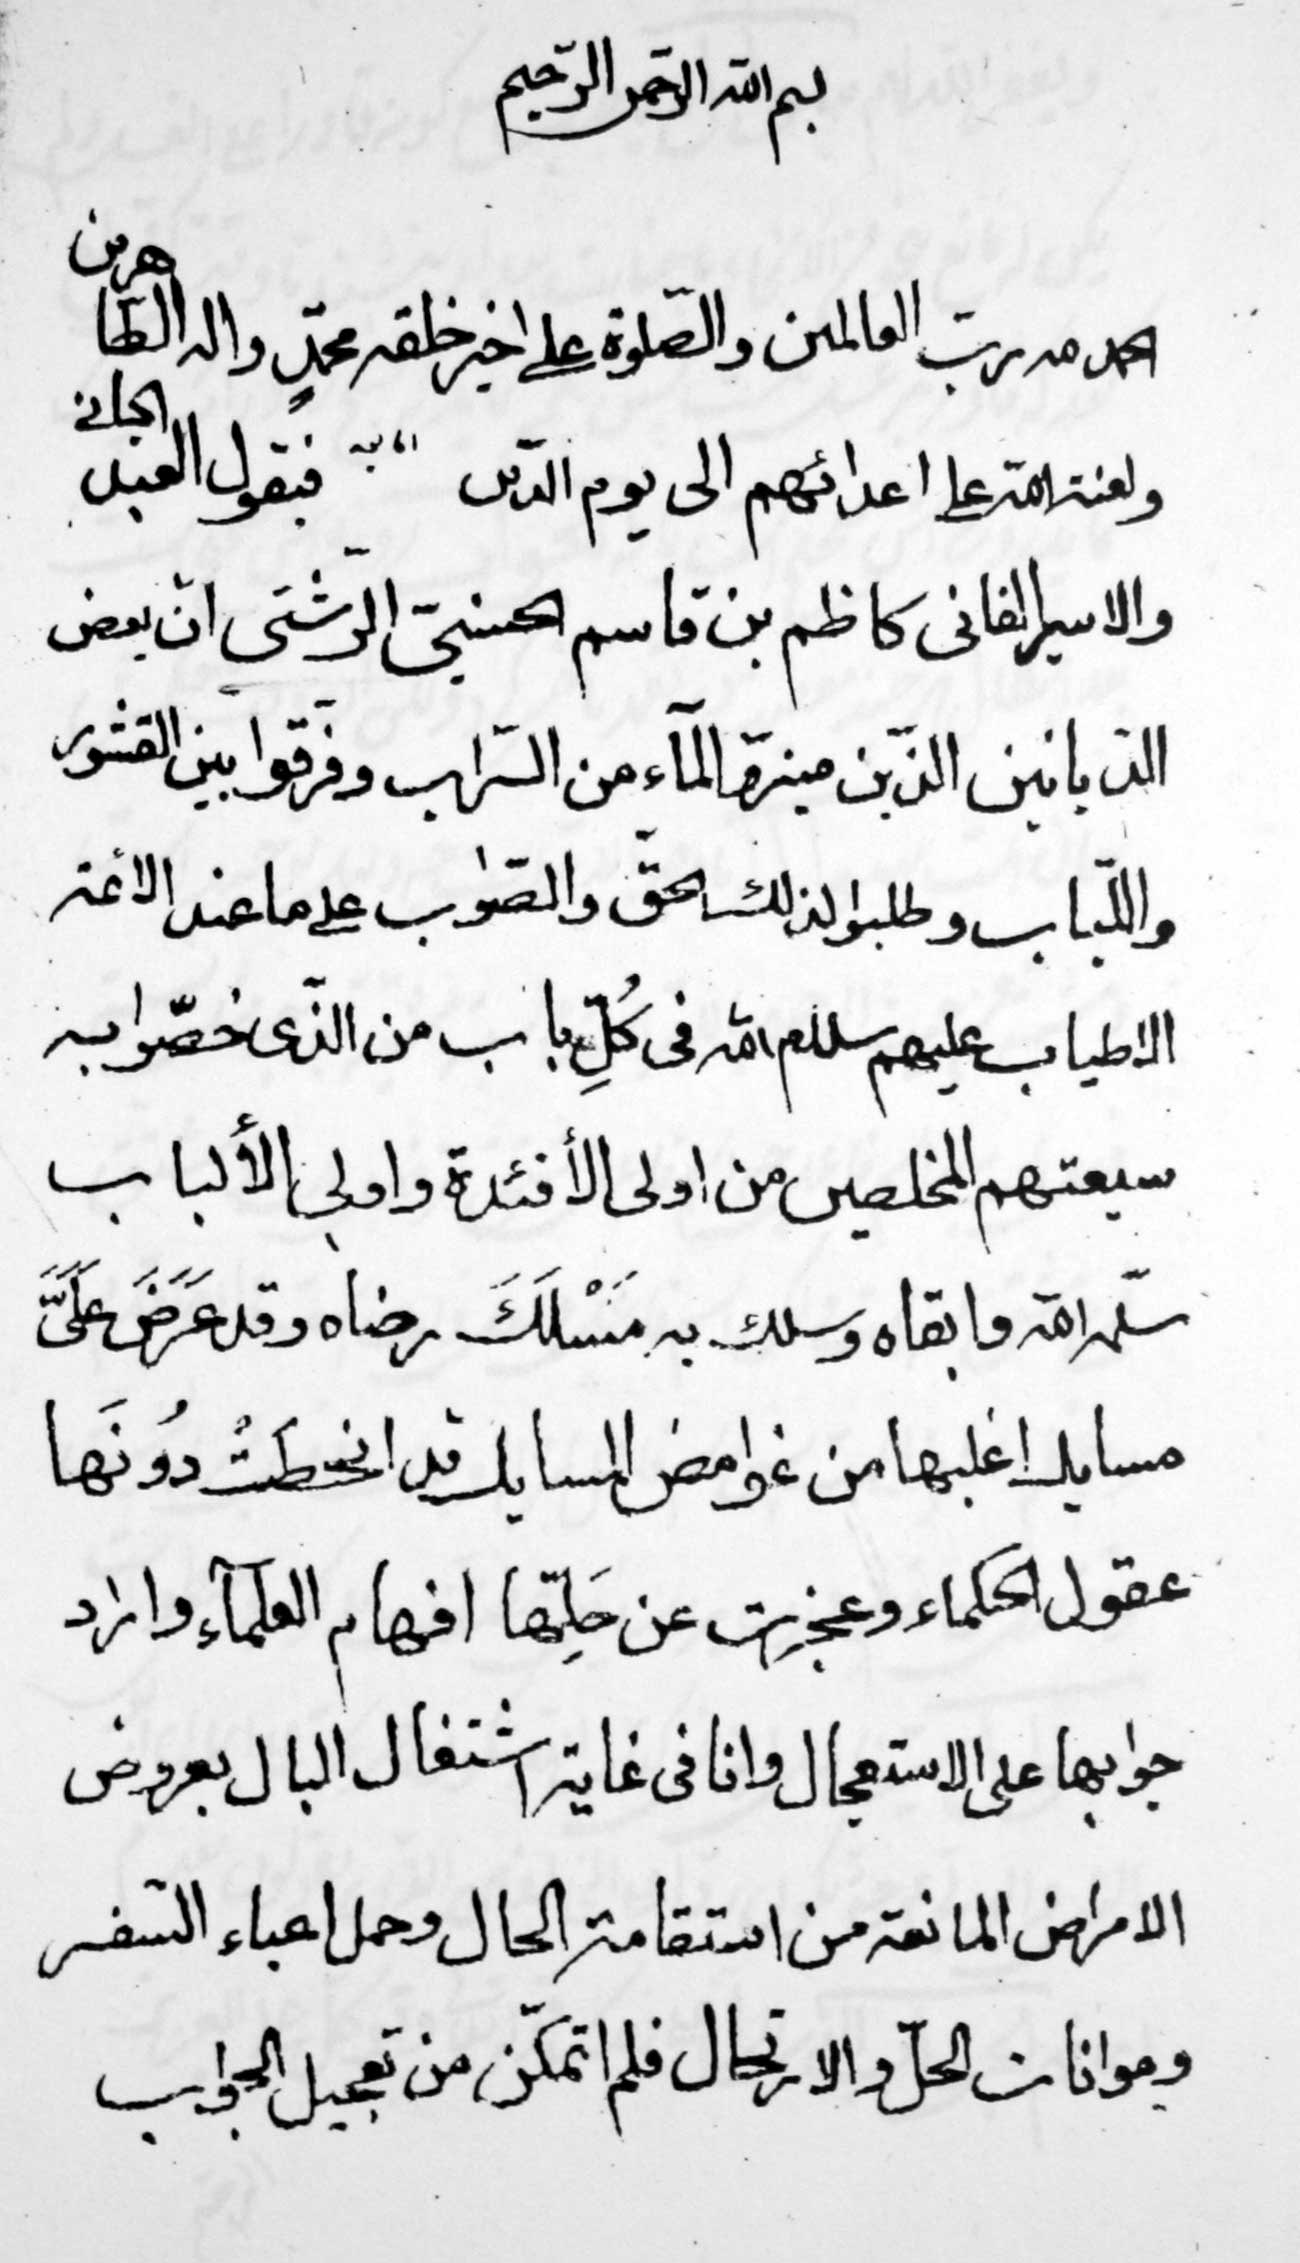 بسم الله الرحمن الرحيم
الحمد لله رب العالمين والصّلوة على اخير خلقه محمّدٍ واله الطّاهرين
ولعنة الله على اعدائهم الى يوم الدّين امّا بعد فيقول العبد الجاني
والاسير الفانى كاظم بن قاسم الحسينىّ الرّشتى انّ بعض
الذين الذّين ميزوا المآء من السّراب وفرّقوا بين القشور
واللّباب وطلبوا لذلك الحقّ والصّواب على ما عند الائمة
الاطياب عليهم سلام الله فى كُلِّ باب من الذّى خصّوا به
شيعتهم المخلصين من اولى الأفئدة واولى الألباب
سلّمه الله وابقاه وسلك به مَسْلَكَ رضاه وقد عَرَضَ عَلَىَّ
مسايل اغلبها من غوامض المسايل قد انحطَتْ دُونَها
عقول الحكماء وعجزت عن حَلِّها افهام العلمآء واراد
جوابها على الاستعجال وانا فى غاية اشتغال البال بعروض
الامراض المانعة من استقامة الحال وحمل اعباء السّفر
وموانات الحلّ والارتحال فلم اتمكّن من تعجيل الجواب